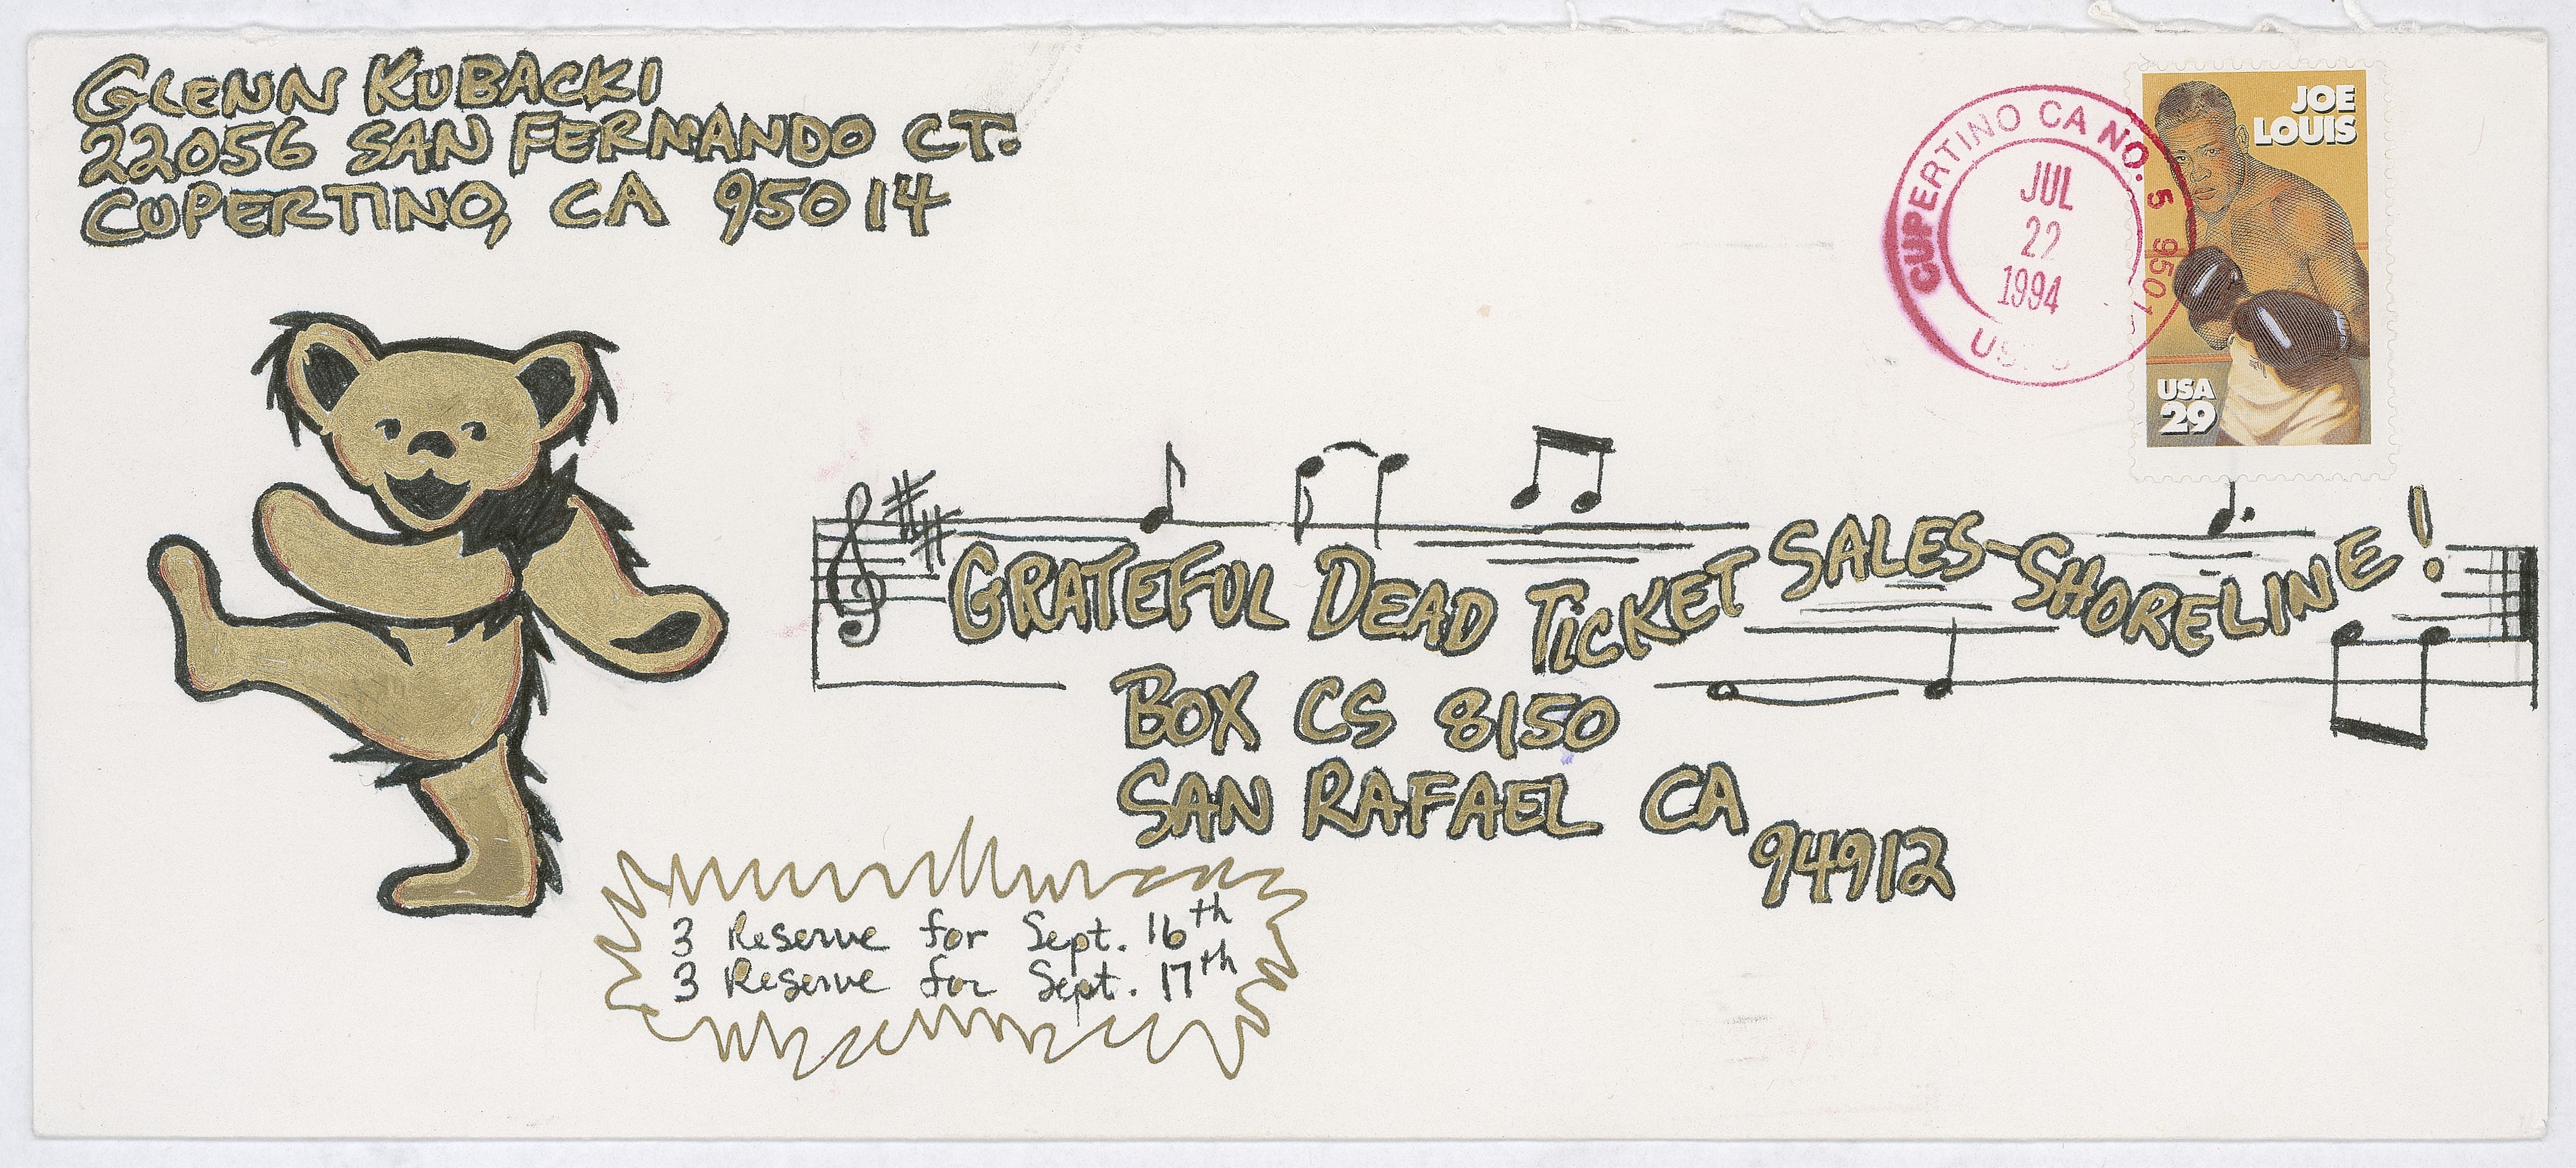 GLENN KUBACKI
22056 SAN FERNANDO CT.
CUPERTINO, CA 95014
CUPERTINO CA NO. 5
JUL
22
1994
JOE
LOUIS
USA
29
GRATEFUL DEAD TICKET SALES-SHORELINE!
BOX CS 8150
SAN RAFAEL CA
94912
3 Reserve for Sept. 16th
3 Reserve for Sept. 17th